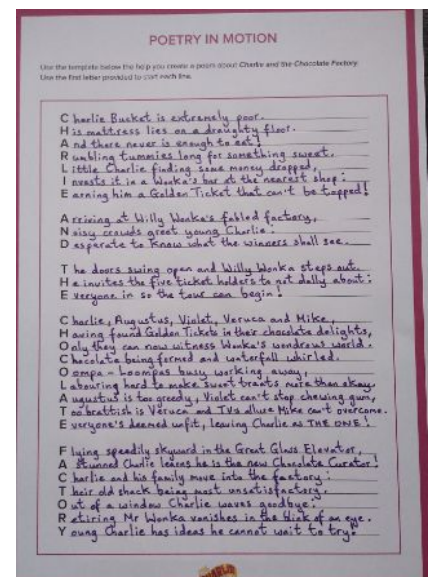 POETRY IN MOTION
Use the template below the help you create a poem about Charlie and the Chocolate Factory.
Use the first letter provided to start each line.
Charlie Bucket is extremely poor.
His mattress lies on a draughty floor.
And there never is enough to eat!
Rumbling tummies long for something sweet.
Little Charlie finding some money dropped,
Invests it in a Wonka's bar at the nearest shop:
Earning him a Golden Ticket that can't be topped!
Arriving at Willy Wonka's fabled factory,
Noisy crowds greet young Charlie:
Desperate to know what the winners shall see.
The doors swing open and Willy Wonka steps out.
He invites the five ticket holders to not dally about:
Everyone in so the tour can begin!
Charlie, Augustus, Violet, Veruca and Mike,
Having found Golden Tickets in their chocolate delights,
Only they can now witness Wonka's wondrous world.
Chocolate being formed and waterfall whirled.
Oompa-Loompas busy working away,
Labouring hard to make sweet treats more than okay.
Augustus is too greedy, Violet can't stop chewing gum,
Too brattish is Veruca and TV's allure Mike can't overcome.
Everyone's deemed unfit, leaving Charlie as THE ONE!
Flying speedily skyward in the Great Glass Elevator,
A stunned Charlie learns he is the new Chocolate Curator!
Charlie and his family move into the factory:
Their old shack being most unsatisfactory.
Out of a window Charlie waves goodbye:
Retiring Mr Wonka vanishes in the blink of an eye.
Young Charlie has ideas he cannot wait to try!